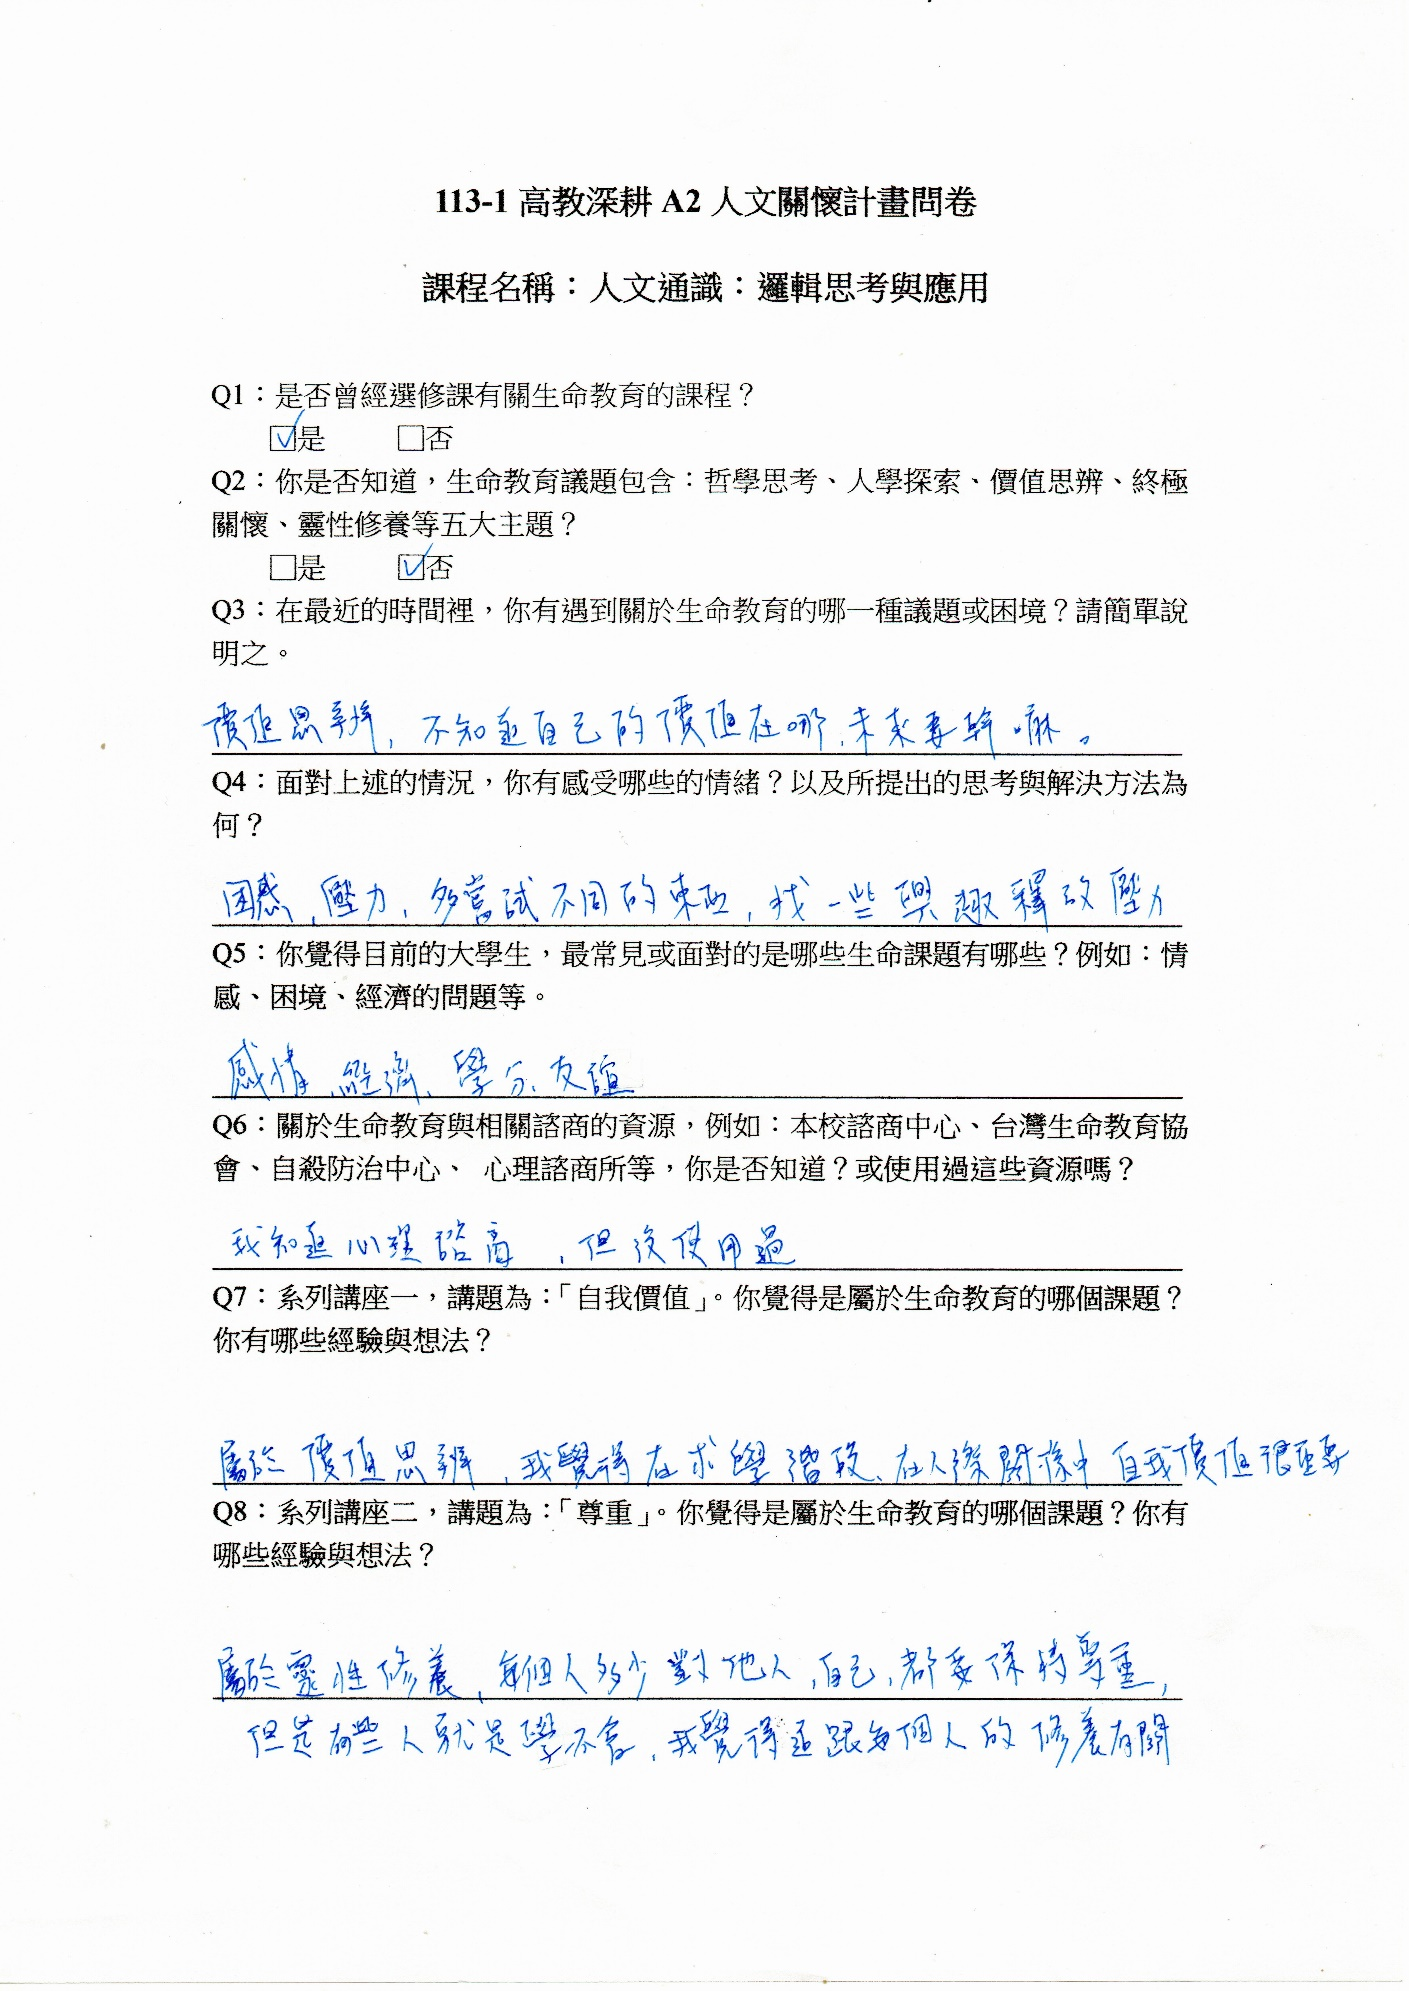 113-1 高教深耕 A2 人文關懷計畫問卷
課程名稱：人文通識：邏輯思考與應用
Q1：是否曾經選修課有關生命教育的課程？
☑是 □否
Q2：你是否知道，生命教育議題包含：哲學思考、人學探索、價值思辨、終極
關懷、靈性修養等五大主題？
□是 ☑否
Q3：在最近的時間裡，你有遇到關於生命教育的哪一種議題或困境？請簡單說
明之。
價值思辨，不知道自己的價值在哪，未來要幹嘛。
Q4：面對上述的情況，你有感受哪些的情緒？以及所提出的思考與解決方法為
何？
困惑、壓力，多嘗試不同的東西，找一些興趣釋放壓力
Q5：你覺得目前的大學生，最常見或面對的是哪些生命課題有哪些？例如：情
感、困境、經濟的問題等。
感情、經濟、學分、友誼
Q6：關於生命教育與相關諮商的資源，例如：本校諮商中心、台灣生命教育協
會、自殺防治中心、 心理諮商所等，你是否知道？或使用過這些資源嗎？
我知道心理諮商，但沒使用過
Q7：系列講座一，講題為：「自我價值」。你覺得是屬於生命教育的哪個課題？
你有哪些經驗與想法？
屬於價值思辨，我覺得在求學階段、在人際關係中自我價值很重要
Q8：系列講座二，講題為：「尊重」。你覺得是屬於生命教育的哪個課題？你有
哪些經驗與想法？
屬於靈性修養，每個人多少對他人，自己，都要保持尊重，
但是有些人就是學不會，我覺得這跟每個人的修養有關